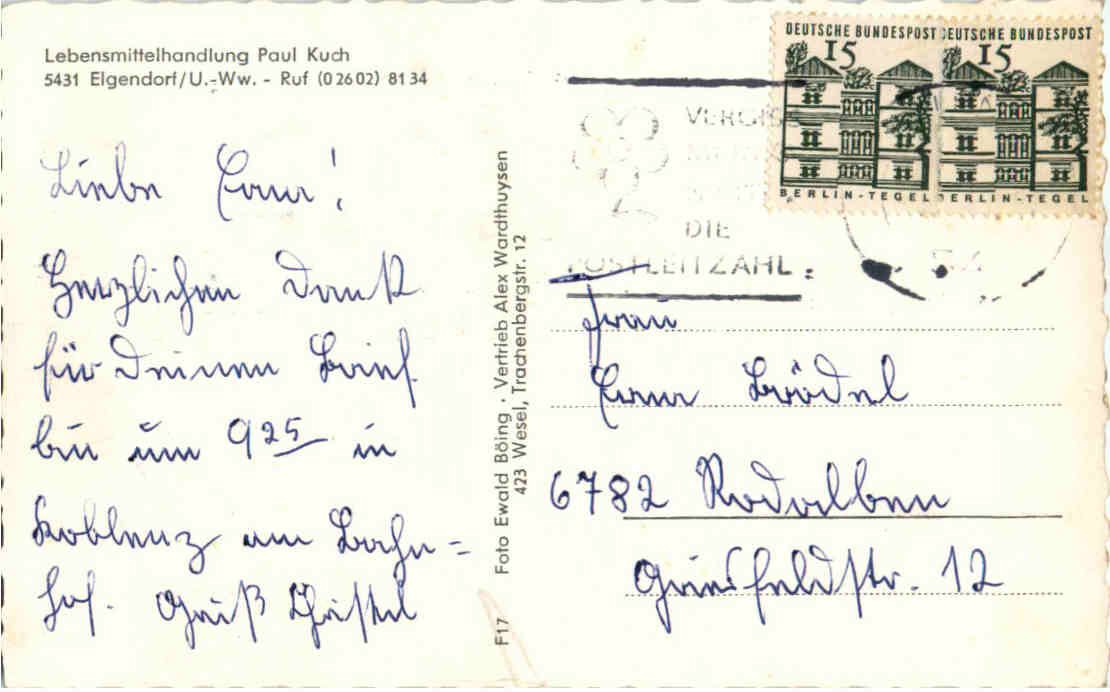 Lebensmittelhandlung Paul Kuch
5431 Elgendorf/U.-Ww. - Ruf (02602) 8134
Herzlichen Dank
für Deinen Brief
bin um 9 25 in
Koblenz am Bahn=
hof. Gruß
Foto Ewald Böing · Vertrieb Alex Wardthuysen
423 Wesel, Trachenbergstr. 12
F17
DEUTSCHE BUNDESPOST
15
BERLIN-TEGEL
DEUTSCHE BUNDESPOST
15
BERLIN-TEGEL
DIE
POSTLEITZAHL
Frau
6782 Rodalben
12